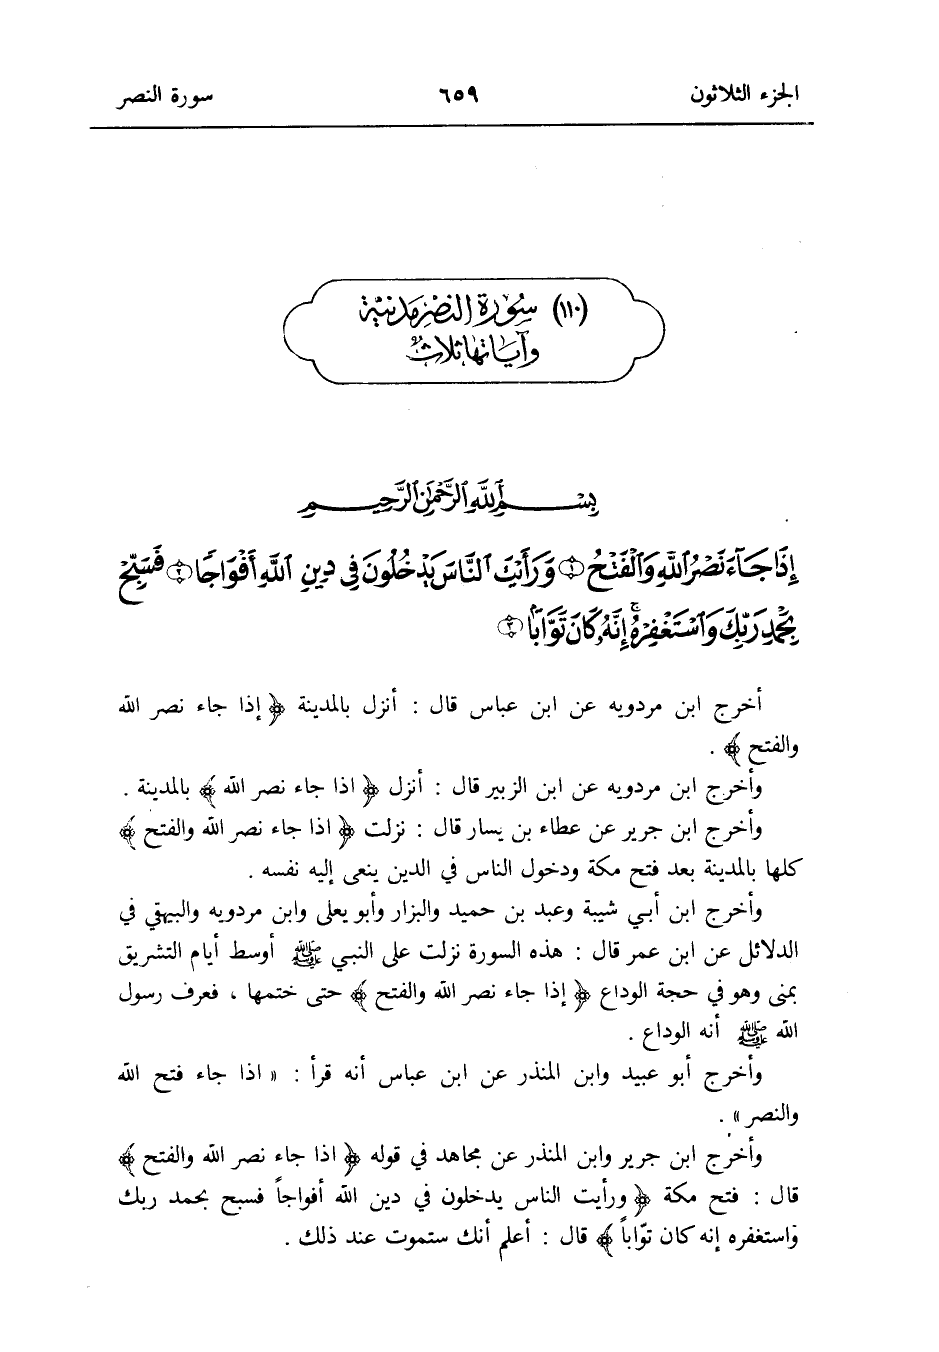 الجزء الثلاثون ٦٥٩ سورة النصر
(١١٠) سُورَة النَّصْرِ مَدَنيَّة
وَآيَاتهَا ثَلَاثٌ
بِسْمِ ٱللَّهِ ٱلرَّحْمَٰنِ ٱلرَّحِيمِ
إِذَا جَآءَ نَصْرُ ٱللَّهِ وَٱلْفَتْحُ ۝١ وَرَأَيْتَ ٱلنَّاسَ يَدْخُلُونَ فِى دِينِ ٱللَّهِ أَفْوَاجًا ۝٢ فَسَبِّحْ
بِحَمْدِ رَبِّكَ وَٱسْتَغْفِرْهُ ۚ إِنَّهُۥ كَانَ تَوَّابًۢا ۝٣
أخرج ابن مردويه عن ابن عباس قال : أنزل بالمدينة ﴿ إذا جاء نصر الله
والفتح ﴾ .
وأخرج ابن مردويه عن ابن الزبير قال : أنزل ﴿ اذا جاء نصر الله ﴾ بالمدينة .
وأخرج ابن جرير عن عطاء بن يسار قال : نزلت ﴿ اذا جاء نصر الله والفتح ﴾
كلها بالمدينة بعد فتح مكة ودخول الناس في الدين ينعى إليه نفسه .
وأخرج ابن أبي شيبة وعبد بن حميد والبزار وأبو يعلى وابن مردويه والبيهقي في
الدلائل عن ابن عمر قال : هذه السورة نزلت على النبي ﷺ أوسط أيام التشريق
بمنى وهو في حجة الوداع ﴿ إذا جاء نصر الله والفتح ﴾ حتى ختمها ، فعرف رسول
الله ﷺ أنه الوداع .
وأخرج أبو عبيد وابن المنذر عن ابن عباس أنه قرأ : « اذا جاء فتح الله
والنصر » .
وأخرج ابن جرير وابن المنذر عن مجاهد في قوله ﴿ اذا جاء نصر الله والفتح ﴾
قال : فتح مكة ﴿ ورأيت الناس يدخلون في دين الله أفواجاً فسبح بحمد ربك
واستغفره إنه كان توّاباً ﴾ قال : أعلم أنك ستموت عند ذلك .